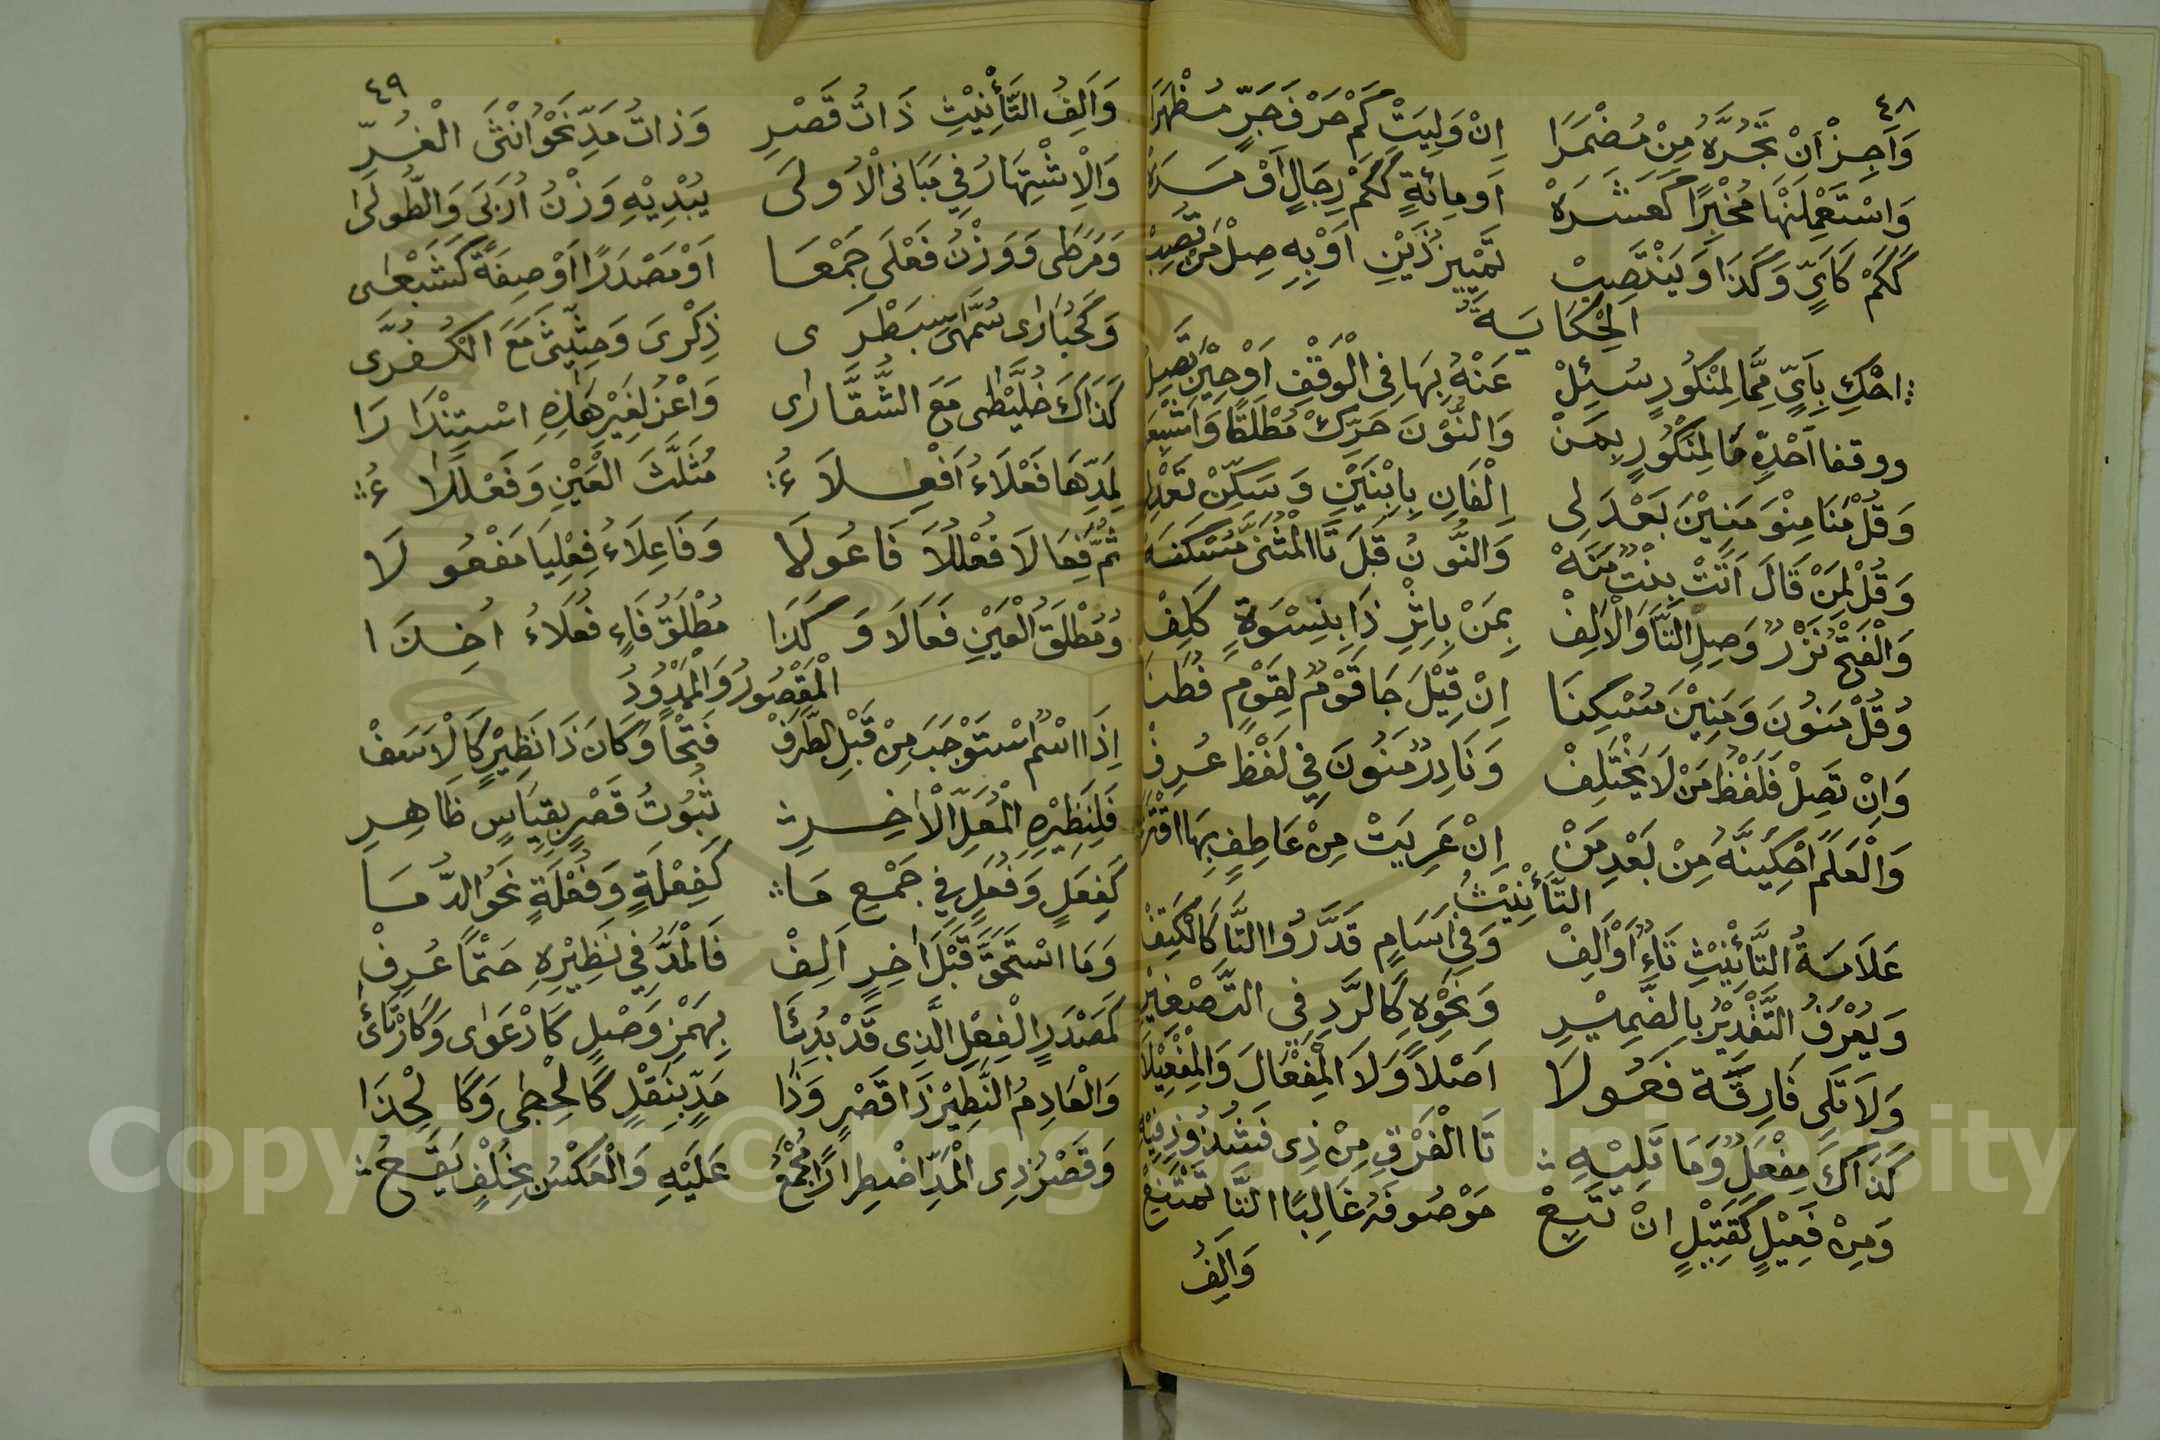 ٤٨
وَاَجِزْ اَنْ تَجُرَّهُ مِنْ مُضْمَرَا اِنْ وَلِيَتْ كَمْ حَرْفَ جَرٍّ مُظْهَرَا
وَاسْتَعْمِلَنْهَا مُخْبِرًا كَعَشَرَهْ اَو مِائَةٍ كَكَمْ رِجَالٍ اَوْ مَرَهْ
كَكَمْ كَاَيٍّ وَكَذَا وَيَنْتَصِبْ تَمْيِيزُ ذَيْنِ اَوْ بِهِ صِلْ مَنْ تُصِبْ
الْحِكَايَةُ
احْكِ بِاَيٍّ مِمَّا لِمَنْكُورٍ سُئِلْ عَنْهُ بِهَا فِى الْوَقْفِ اَوْ حِيْنَ تَصِلْ
ووقفا اَحْدِهِ مَا لِمَنْكُورٍ بِمَنْ وَالنُّوْنَ حَرِّكْ مُطْلَقًا وَاَشْبِعَنْ
وَقُلْ مَنَا مِنْوَ مَنِيْنَ بَعْدَ لِى اِلْفَانِ بِابْنَيْنِ وَسَكِّنْ تَعْدِلِ
وَقُلْ لِمَنْ قَالَ اَتَتْ بِنْتٌ مَنَهْ وَالنُّوْنُ قَبْلَ تَا الْمُثَنَّى مُسْكَنَهْ
وَالْفَتْحُ نَزْرٌ وَصِلِ التَّا وَالْاَلِفْ بِمَنْ بِاِثْرِ ذَا بِنِسْوَةٍ كَلِفْ
وَقُلْ مَنُوْنَ وَمَنِيْنَ مُسْكِنَا اِنْ قِيْلَ جَا قَوْمٌ لِقَوْمٍ فُطَنَا
وَاِنْ تَصِلْ فَلَفْظُ مَنْ لَا يَخْتَلِفْ وَنَادِرٌ مَنُوْنَ فِي لَفْظٍ عُرِفْ
وَالْعَلَمَ احْكِيَنَّهُ مِنْ بَعْدِ مَنْ اِنْ عَرِيَتْ مِنْ عَاطِفٍ بِهَا اقْتَرَنْ
التَّأْنِيْثُ
عَلَامَةُ التَّأْنِيْثِ تَاءٌ اَوْ اَلِفْ وَفِي اَسَامٍ قَدَّرُوا التَّا كَالْكَتِفْ
وَيُعْرَفُ التَّقْدِيْرُ بِالضَّمِيْرِ وَنَحْوِهِ كَالرَّدِّ فِي التَّصْغِيْرِ
وَلَا تَلِى فَارِقَةً فَعُوْلَا اَصْلًا وَلَا الْمِفْعَالَ وَالْمِفْعِيْلَا
كَذَاكَ مِفْعَلٌ وَمَا تَلِيْهِ تَا الْفَرْقِ مِنْ ذِى فَشُذُوْذٌ فِيْهِ
وَمِنْ فَعِيْلٍ كَقَتِيْلٍ اِنْ تَبِعْ مَوْصُوفَهُ غَالِبًا التَّا تَمْتَنِعْ
وَاَلِفُ
٤٩
وَاَلِفُ التَّأْنِيْثِ ذَاتُ قَصْرِ وَذاتُ مَدٍّ نَحْوُ اُنْثَى الْغُرِّ
وَالْاِشْتِهَارُ فِي مَبَانِى الْاُولَى يُبْدِيْهِ وَزْنُ اُرَبَى وَالطُّولَى
وَمَرَطَى وَوَزْنُ فَعْلَى جَمْعَا اَوْ مَصْدَرًا اَوْ صِفَةً كَشَبْعَى
وَكَحُبَارٰى سُمَّهَى سِبَطْرَى ذِكْرَى وَحِثِّيثَى مَعَ الْكُفُرَّى
كَذَاكَ خُلَّيْطٰى مَعَ الشُّقَّارٰى وَاعْزُ لِغَيْرِ هٰذِهِ اسْتِنْدَارَا
لِمَدِّهَا فَعْلَاءُ اَفْعِلَاءُ مُثَلَّثَ الْعَيْنِ وَفَعْلَلَاءُ
ثُمَّ فِعَالَا فُعْلُلَا فَاعُولَا وَفَاعِلَاءُ فِعْلِيَا مَفْعُولَا
وَمُطْلَقَ الْعَيْنِ فَعَالَا وَكَذَا مُطْلَقَ فَاءٍ فُعَلَاءُ اُخِذَا
الْمَقْصُورُ وَالْمَمْدُوْدُ
اِذَا اسْمٌ اسْتَوْجَبَ مِنْ قَبْلِ الطَّرَفْ فَتْحًا وَكَانَ ذَا نَظِيْرٍ كَالْاَسَفْ
فَلِنَظِيْرِهِ الْمُعَلِّ الْاٰخِرِ ثُبُوْتُ قَصْرٍ بِقِيَاسٍ ظَاهِرِ
كَفِعَلٍ وَفُعَلٍ فِي جَمْعِ مَا كَفِعْلَةٍ وَفُعْلَةٍ نَحْوُ الدُّمَا
وَمَا اسْتَحَقَّ قَبْلَ اٰخِرٍ اَلِفْ فَالْمَدُّ فِي نَظِيْرِهِ حَتْمًا عُرِفْ
كَمَصْدَرِ الْفِعْلِ الَّذِى قَدْ بُدِئَا بِهَمْزِ وَصْلٍ كَارْعَوٰى وَكَارْتَائَ
وَالْعَادِمُ النَّظِيْرِ ذَا قَصْرٍ وَذَا مَدٍّ بِنَقْلٍ كَالْحِجٰى وَكَالْحِذَا
وَقَصْرُ ذِى الْمَدِّ اضْطِرارًا مُجْمَعُ عَلَيْهِ وَالْعَكْسُ بِخُلْفٍ يَقَعُ
Copyright © King Saud University